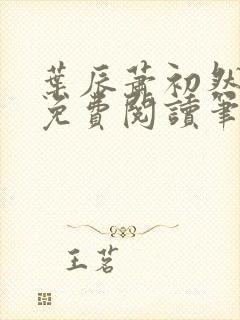 葉辰蕭初然
免費閱讀筆
王茗